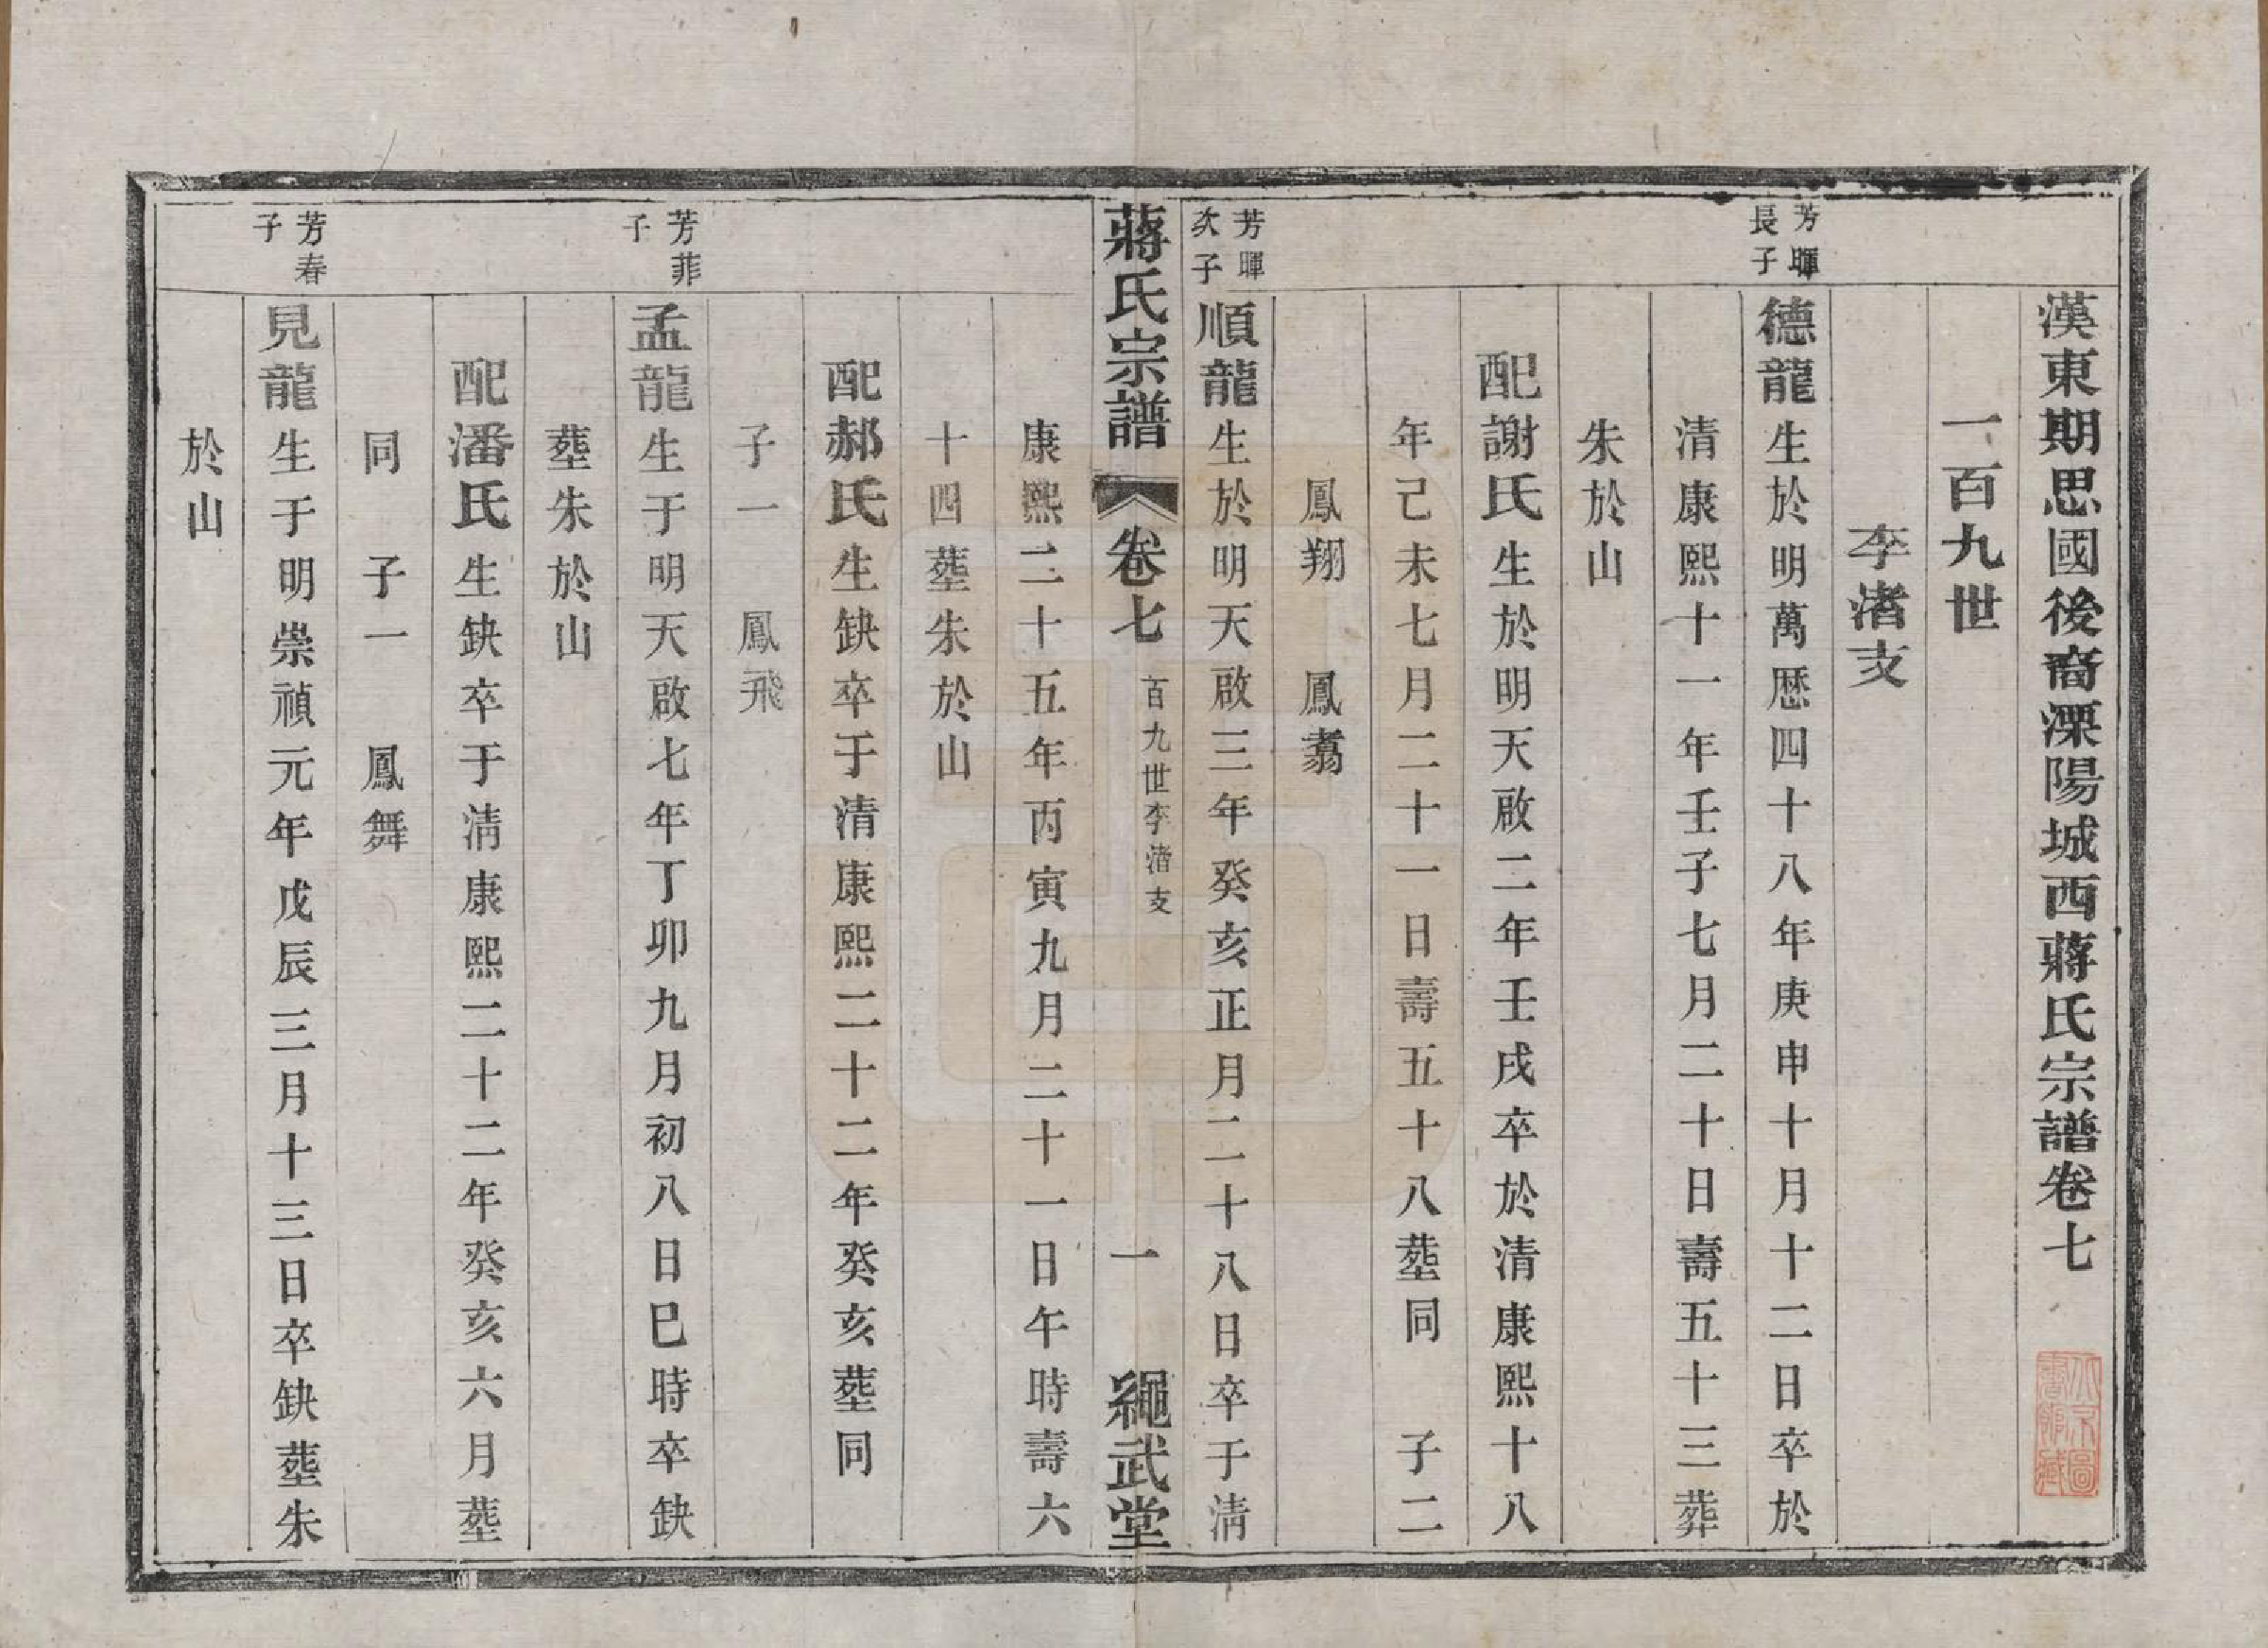 漢東期思國後裔溧陽城西蔣氏宗譜卷七
一百九世
李渚支
芳暉
長子
德龍生於明萬歷四十八年庚申十月十二日卒於
清康熙十一年壬子七月二十日壽五十三葬
朱於山
配謝氏生於明天啟二年壬戌卒於清康熙十八
年己未七月二十一日壽五十八塟同　子二
鳳翔　鳳翥
芳暉
次子
順龍生於明天啟三年癸亥正月二十八日卒于清
蔣氏宗譜　卷七　百九世李渚支　一　繩武堂
康熙二十五年丙寅九月二十一日午時壽六
十四塟朱於山
配郝氏生缺卒于清康熙二十二年癸亥塟同
子一　鳳飛
芳菲
子
孟龍生于明天啟七年丁卯九月初八日巳時卒缺
塟朱於山
配潘氏生缺卒于淸康熙二十二年癸亥六月塟
同　子一　鳳舞
芳春
子
見龍生于明崇禎元年戊辰三月十三日卒缺塟朱
於山